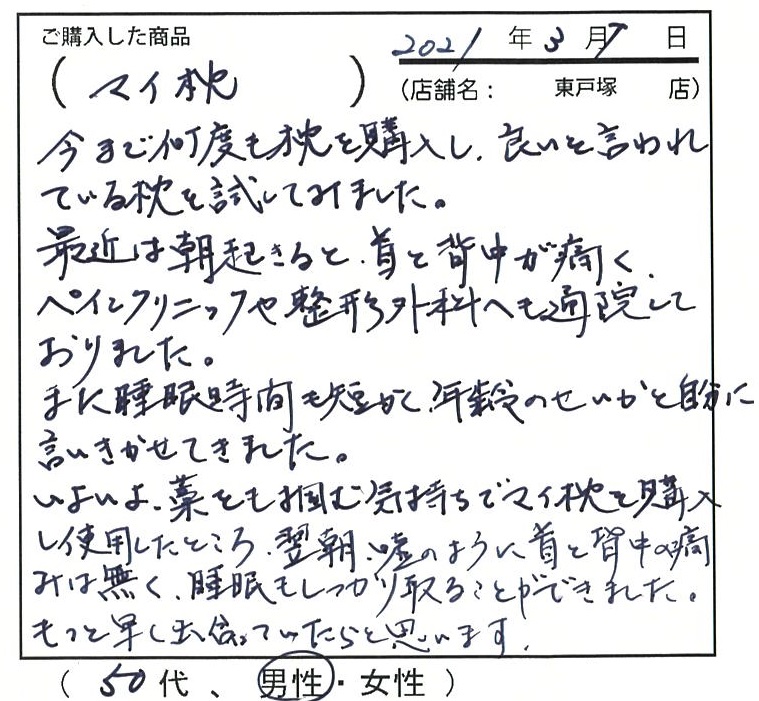 ご購入した商品
2021 年 3 月 7 日
( マイ枕 )
(店舗名： 東戸塚 店)
今まで何度も枕を購入し、良いと言われ
ている枕を試してみました。
最近は朝起きると、首と背中が痛く、
ペインクリニックや整形外科へも通院して
おりました。
また睡眠時間も短かく、年齢のせいかと自分に
言いきかせてきました。
いよいよ、藁をも掴む気持ちでマイ枕を購入
し使用したところ、翌朝、嘘のように首と背中の痛
みは無く、睡眠もしっかり取ることができました。
もっと早く出会っていたらと思います。
( 50代 、 男性・女性 )